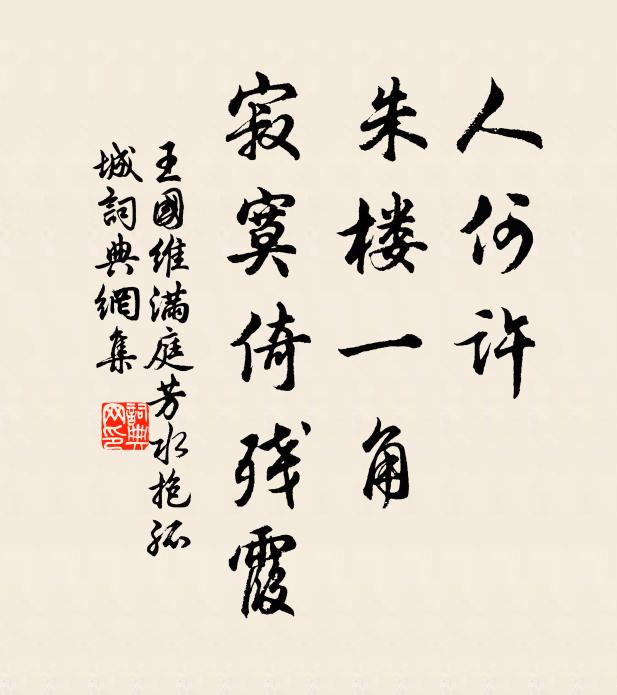 人何许
朱楼一角
寂寞倚残霞
王國维满庭芳水抱孤
城詞典網集
詞典
网印